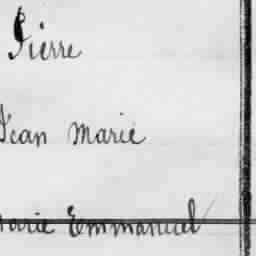 Pierre
Jean Marie
Marie Emmanuel